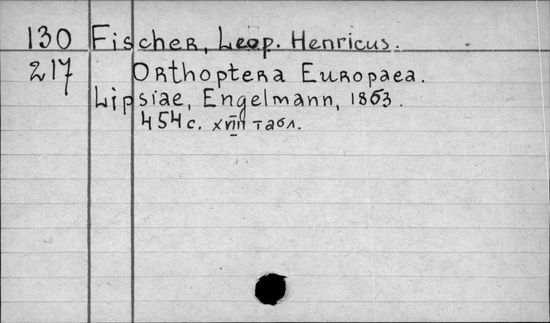 130 Fischer, Leop. Henricus.
217 Orthoptera Europaea.
Lipsiae, Engelmann, 1853.
454 с. XVIII табл.